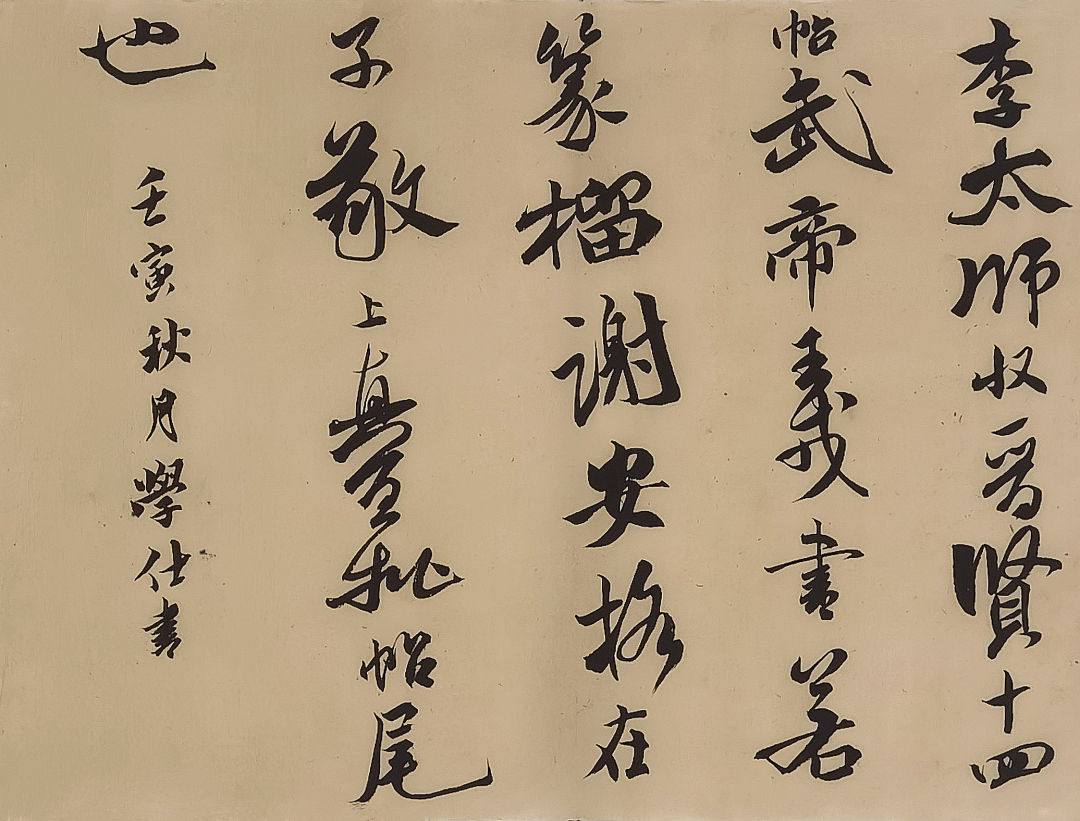 李太師收晉賢十四
帖武帝羲書若
篆榴謝安格在
子敬上真宜批帖尾
也
壬寅秋月學仕書